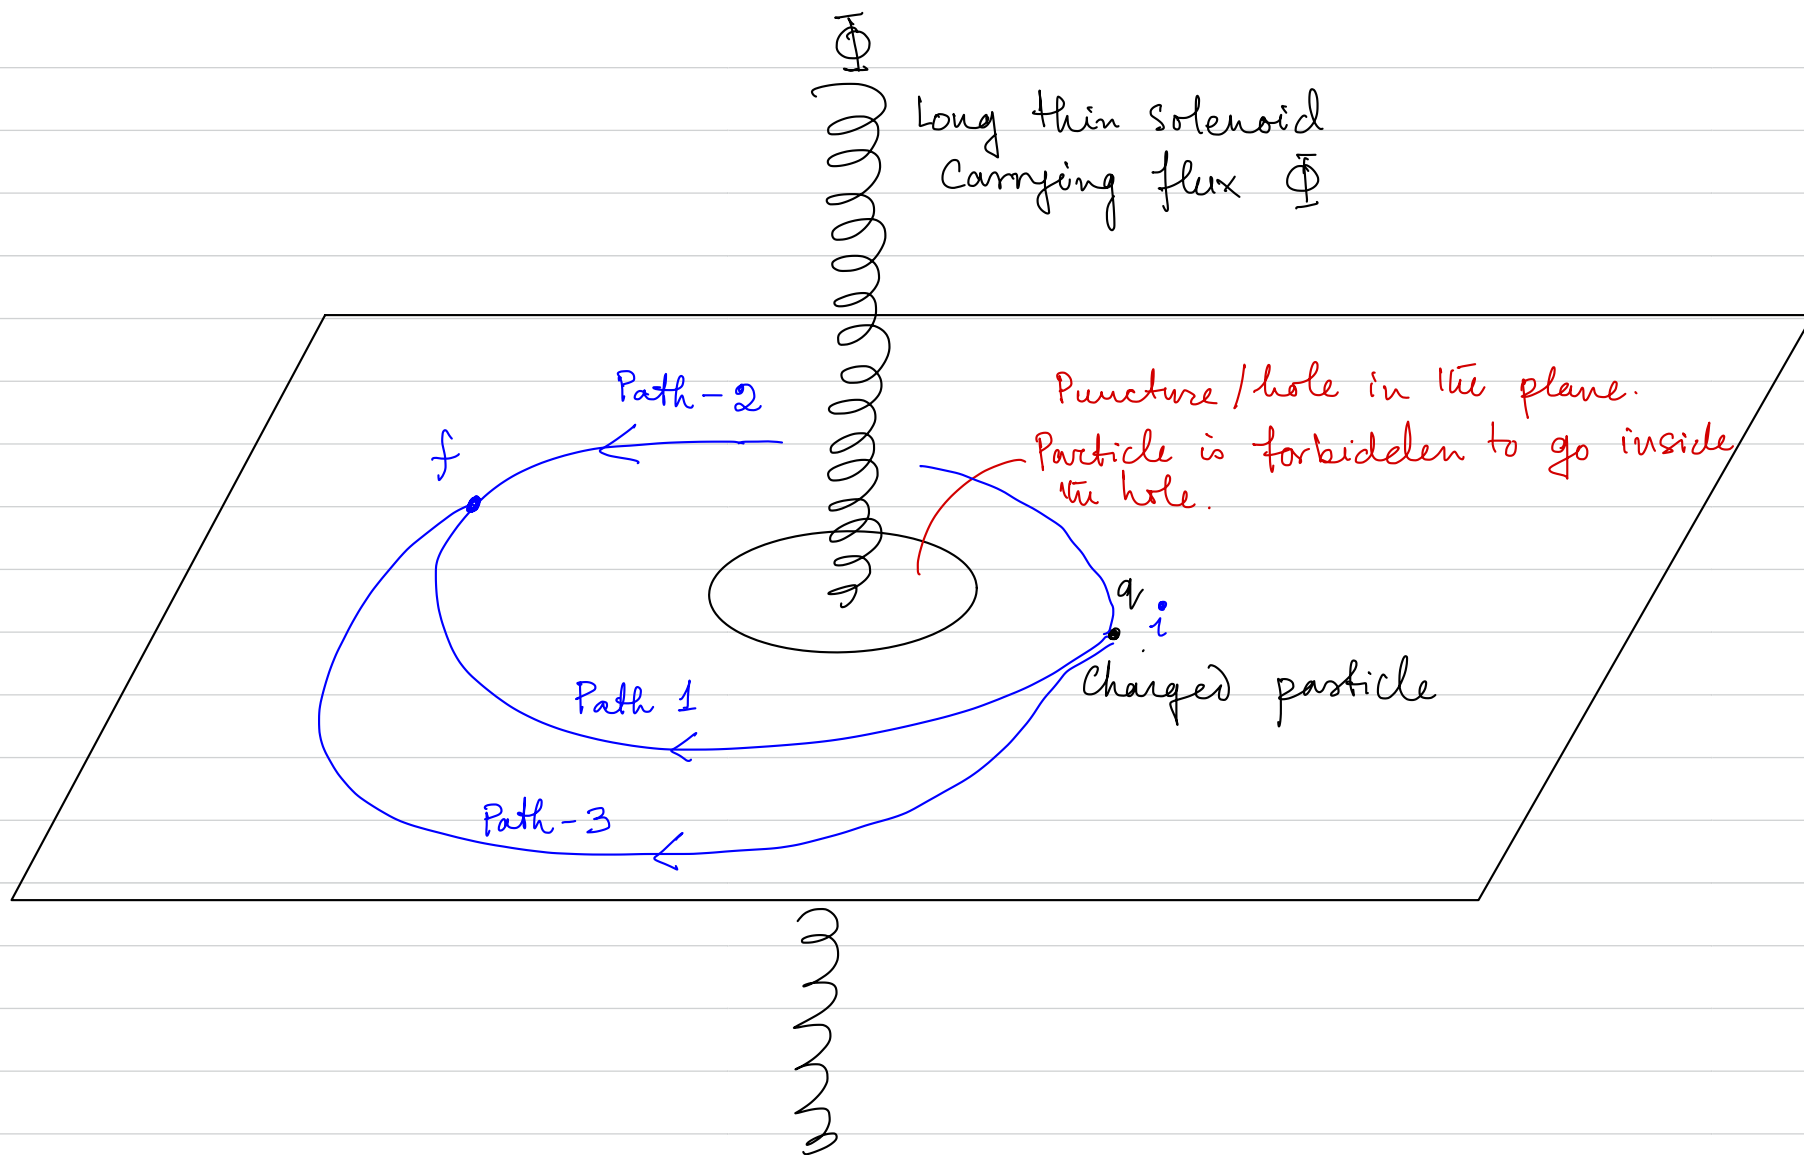 Φ
Long thin solenoid
Carrying flux Φ
Path-2
Puncture/hole in the plane.
f
Particle is forbidden to go inside
the hole.
q
i
Charged particle
Path 1
Path-3